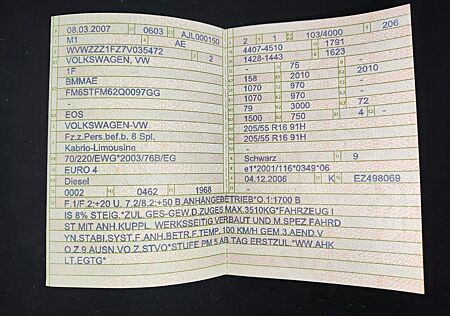 08.03.2007 0603 AJL000150
M1 AE
WVWZZZ1FZ7V035472 2
VOLKSWAGEN, VW
1F
BMMAE
FM6STFM62Q0097GG
-
EOS
VOLKSWAGEN-VW
Fz.z.Pers.bef.b. 8 Spl.
Kabrio-Limousine
70/220/EWG*2003/76B/EG
EURO 4
Diesel
0002 0462 1968
2 1 103/4000 206
4407-4510 1791
1428-1443 1623
- 75 -
158 2010 2010
1070 970 -
1070 970 -
79 3000 72
1500 750 4 -
205/55 R16 91H
205/55 R16 91H
-
Schwarz 9
e1*2001/116*0349*06
04.12.2006 K EZ498069
F.1/F.2:+20 U. 7.2/8.2:+50 B.ANHÄNGEBETRIEB*O.1:1700 B
IS 8% STEIG.*ZUL.GES-GEW.D.ZUGES MAX.3510KG*FAHRZEUG I
ST MIT ANH.KUPPL. WERKSSEITIG VERBAUT UND M.SPEZ.FAHRD
YN.STABI.SYST.F.ANH.BETR.F.TEMP.100 KM/H GEM.3.AEND.V
O.Z.9.AUSN.VO.Z.STVO*STUFE PM 5 AB TAG ERSTZUL.*WW.AHK
LT.EGTG*